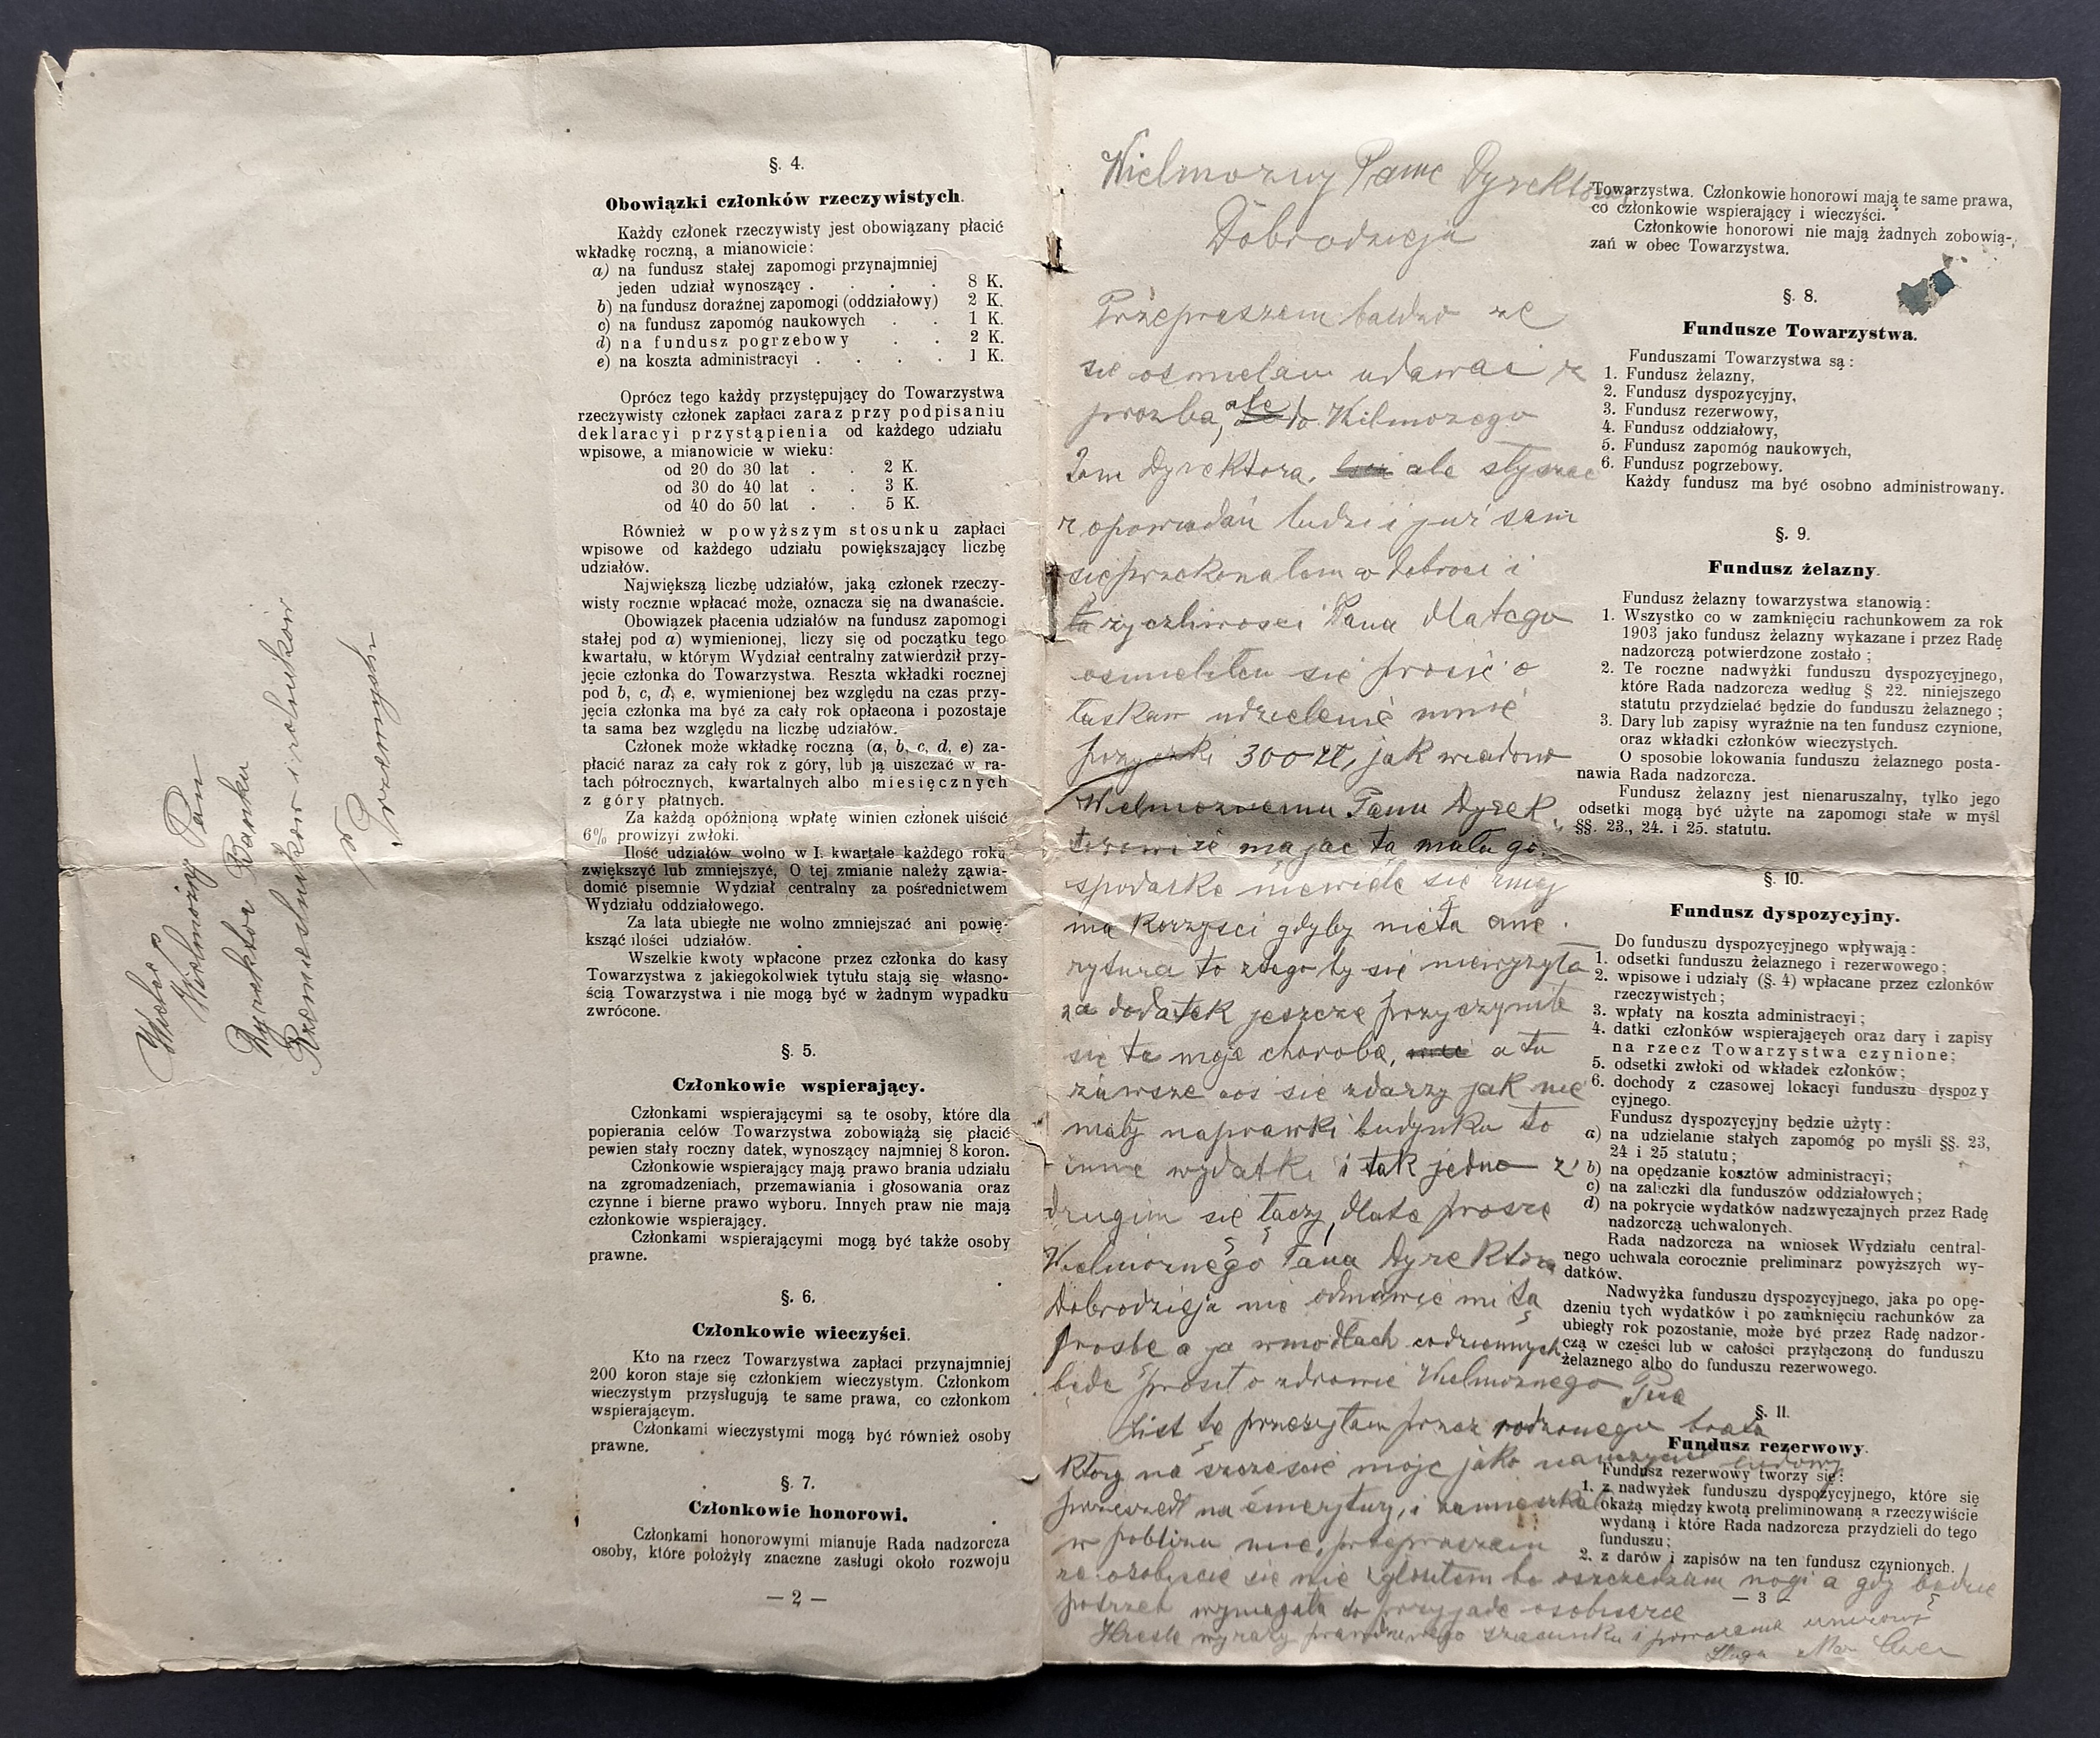 Wielce
Wielmożny Pan
Dyrektor Banku
Rzemieslników i rolników
w
Przemyślu
§. 4.
Obowiązki członków rzeczywistych.
Każdy członek rzeczywisty jest obowiązany płacić
wkładkę roczną, a mianowicie:
a) na fundusz stałej zapomogi przynajmniej
jeden udział wynoszący . . . . 8 K.
b) na fundusz doraźnej zapomogi (oddziałowy) 2 K.
c) na fundusz zapomóg naukowych . . 1 K.
d) na fundusz pogrzebowy . . 2 K.
e) na koszta administracyi . . . . 1 K.
Oprócz tego każdy przystępujący do Towarzystwa
rzeczywisty członek zapłaci zaraz przy podpisaniu
deklaracyi przystąpienia od każdego udziału
wpisowe, a mianowicie w wieku:
od 20 do 30 lat . . 2 K.
od 30 do 40 lat . . 3 K.
od 40 do 50 lat . . 5 K.
Również w powyższym stosunku zapłaci
wpisowe od każdego udziału powiększający liczbę
udziałów.
Największą liczbę udziałów, jaką członek rzeczy-
wisty rocznie wpłacać może, oznacza się na dwanaście.
Obowiązek płacenia udziałów na fundusz zapomogi
stałej pod a) wymienionej, liczy się od początku tego
kwartału, w którym Wydział centralny zatwierdził przy-
jęcie członka do Towarzystwa. Reszta wkładki rocznej
pod b, c, d, e, wymienionej bez względu na czas przy-
jęcia członka ma być za cały rok opłacona i pozostaje
ta sama bez względu na liczbę udziałów.
Członek może wkładkę roczną (a, b, c, d, e) za-
płacić naraz za cały rok z góry, lub ją uiszczać w ra-
tach półrocznych, kwartalnych albo miesięcznych
z góry płatnych.
Za każdą opóźnioną wpłatę winien członek uiścić
6% prowizyi zwłoki.
Ilość udziałów wolno w I. kwartale każdego roku
zwiększyć lub zmniejszyć, O tej zmianie należy zawia-
domić pisemnie Wydział centralny za pośrednictwem
Wydziału oddziałowego.
Za lata ubiegłe nie wolno zmniejszać ani powię-
kszać ilości udziałów.
Wszelkie kwoty wpłacone przez członka do kasy
Towarzystwa z jakiegokolwiek tytułu stają się własno-
ścią Towarzystwa i nie mogą być w żadnym wypadku
zwrócone.
§. 5.
Członkowie wspierający.
Członkami wspierającymi są te osoby, które dla
popierania celów Towarzystwa zobowiążą się płacić
pewien stały roczny datek, wynoszący najmniej 8 koron.
Członkowie wspierający mają prawo brania udziału
na zgromadzeniach, przemawiania i głosowania oraz
czynne i bierne prawo wyboru. Innych praw nie mają
członkowie wspierający.
Członkami wspierającymi mogą być także osoby
prawne.
§. 6.
Członkowie wieczyści.
Kto na rzecz Towarzystwa zapłaci przynajmniej
200 koron staje się członkiem wieczystym. Członkom
wieczystym przysługują te same prawa, co członkom
wspierającym.
Członkami wieczystymi mogą być również osoby
prawne.
§. 7.
Członkowie honorowi.
Członkami honorowymi mianuje Rada nadzorcza
osoby, które położyły znaczne zasługi około rozwoju
— 2 —
Wielmożny Panie Dyrektorze
Dobrodzieja
Przepraszam bardzo ze
sie osmielam udawac z
prozba, ale do Wilmozego
Pom Dyrektora. ale slyszac
z opowiadań ludzi i już sam
sie przekonałem o dobroci i
życzliwosci Pana dlatego
osmieliłem się prosić o
łaskaw udzielenie mnie
pozyczki 300 zł, jak wiadono
Wielmoznemu Panu Dyrek
torowi że mając tą mała go
spodarke niewiele się z niej
ma korzysci gdyby nie ta eme
rytura to z tego by się niewyzyła
na dodatek jeszcze przyczyniła
się ta moja choroba, a tu
zawsze cos sie zdarzy jak nie
mały naprawki budynku to
inne wydatki i tak jedno z
drugim się łączy, dlate prosze
Wielmożnego Pana Dyrektora
Dobrodzieja nie odmawić mi tą
prosbe a ja w modłach codziennych
będe prosił o zdrowie Wielmoznego Pna
List te przesyłam przez rodzonego brata
który na szczescie moje jako nauczyciel ludowy
przeszedł na emeryture, i zamieszkał
w poblizu mnie, przepraszam
ze osobiscie się nie zgłosiłem bo oszczedzam nogi a gdy bedzie
potrzeb wymagała to przyjade osobiscie
Kresle wyrazy prawdziwego szacunku i powazania
Sługa
Towarzystwa. Członkowie honorowi mają te same prawa,
co członkowie wspierający i wieczyści.
Członkowie honorowi nie mają żadnych zobowią-
zań w obec Towarzystwa.
§. 8.
Fundusze Towarzystwa.
Funduszami Towarzystwa są:
1. Fundusz żelazny,
2. Fundusz dyspozycyjny,
3. Fundusz rezerwowy,
4. Fundusz oddziałowy,
5. Fundusz zapomóg naukowych,
6. Fundusz pogrzebowy.
Każdy fundusz ma być osobno administrowany.
§. 9.
Fundusz żelazny.
Fundusz żelazny towarzystwa stanowią:
1. Wszystko co w zamknięciu rachunkowem za rok
1903 jako fundusz żelazny wykazane i przez Radę
nadzorczą potwierdzone zostało;
2. Te roczne nadwyżki funduszu dyspozycyjnego,
które Rada nadzorcza według § 22. niniejszego
statutu przydzielać będzie do funduszu żelaznego;
3. Dary lub zapisy wyraźnie na ten fundusz czynione,
oraz wkładki członków wieczystych.
O sposobie lokowania funduszu żelaznego posta-
nawia Rada nadzorcza.
Fundusz żelazny jest nienaruszalny, tylko jego
odsetki mogą być użyte na zapomogi stałe w myśl
§§. 23., 24. i 25. statutu.
§. 10.
Fundusz dyspozycyjny.
Do funduszu dyspozycyjnego wpływają:
1. odsetki funduszu żelaznego i rezerwowego;
2. wpisowe i udziały (§. 4) wpłacane przez członków
rzeczywistych;
3. wpłaty na koszta administracyi;
4. datki członków wspierających oraz dary i zapisy
na rzecz Towarzystwa czynione;
5. odsetki zwłoki od wkładek członków;
6. dochody z czasowej lokacyi funduszu dyspozy
cyjnego.
Fundusz dyspozycyjny będzie użyty:
a) na udzielanie stałych zapomóg po myśli §§. 23,
24 i 25 statutu;
b) na opędzanie kosztów administracyi;
c) na zaliczki dla funduszów oddziałowych;
d) na pokrycie wydatków nadzwyczajnych przez Radę
nadzorczą uchwalonych.
Rada nadzorcza na wniosek Wydziału central-
nego uchwala corocznie preliminarz powyższych wy-
datków.
Nadwyżka funduszu dyspozycyjnego, jaka po opę-
dzeniu tych wydatków i po zamknięciu rachunków za
ubiegły rok pozostanie, może być przez Radę nadzor-
czą w części lub w całości przyłączoną do funduszu
żelaznego albo do funduszu rezerwowego.
§. 11.
Fundusz rezerwowy.
Fundusz rezerwowy tworzy się:
1. z nadwyżek funduszu dyspozycyjnego, które się
okażą między kwotą preliminowaną a rzeczywiście
wydaną i które Rada nadzorcza przydzieli do tego
funduszu;
2. z darów i zapisów na ten fundusz czynionych.
— 3 —